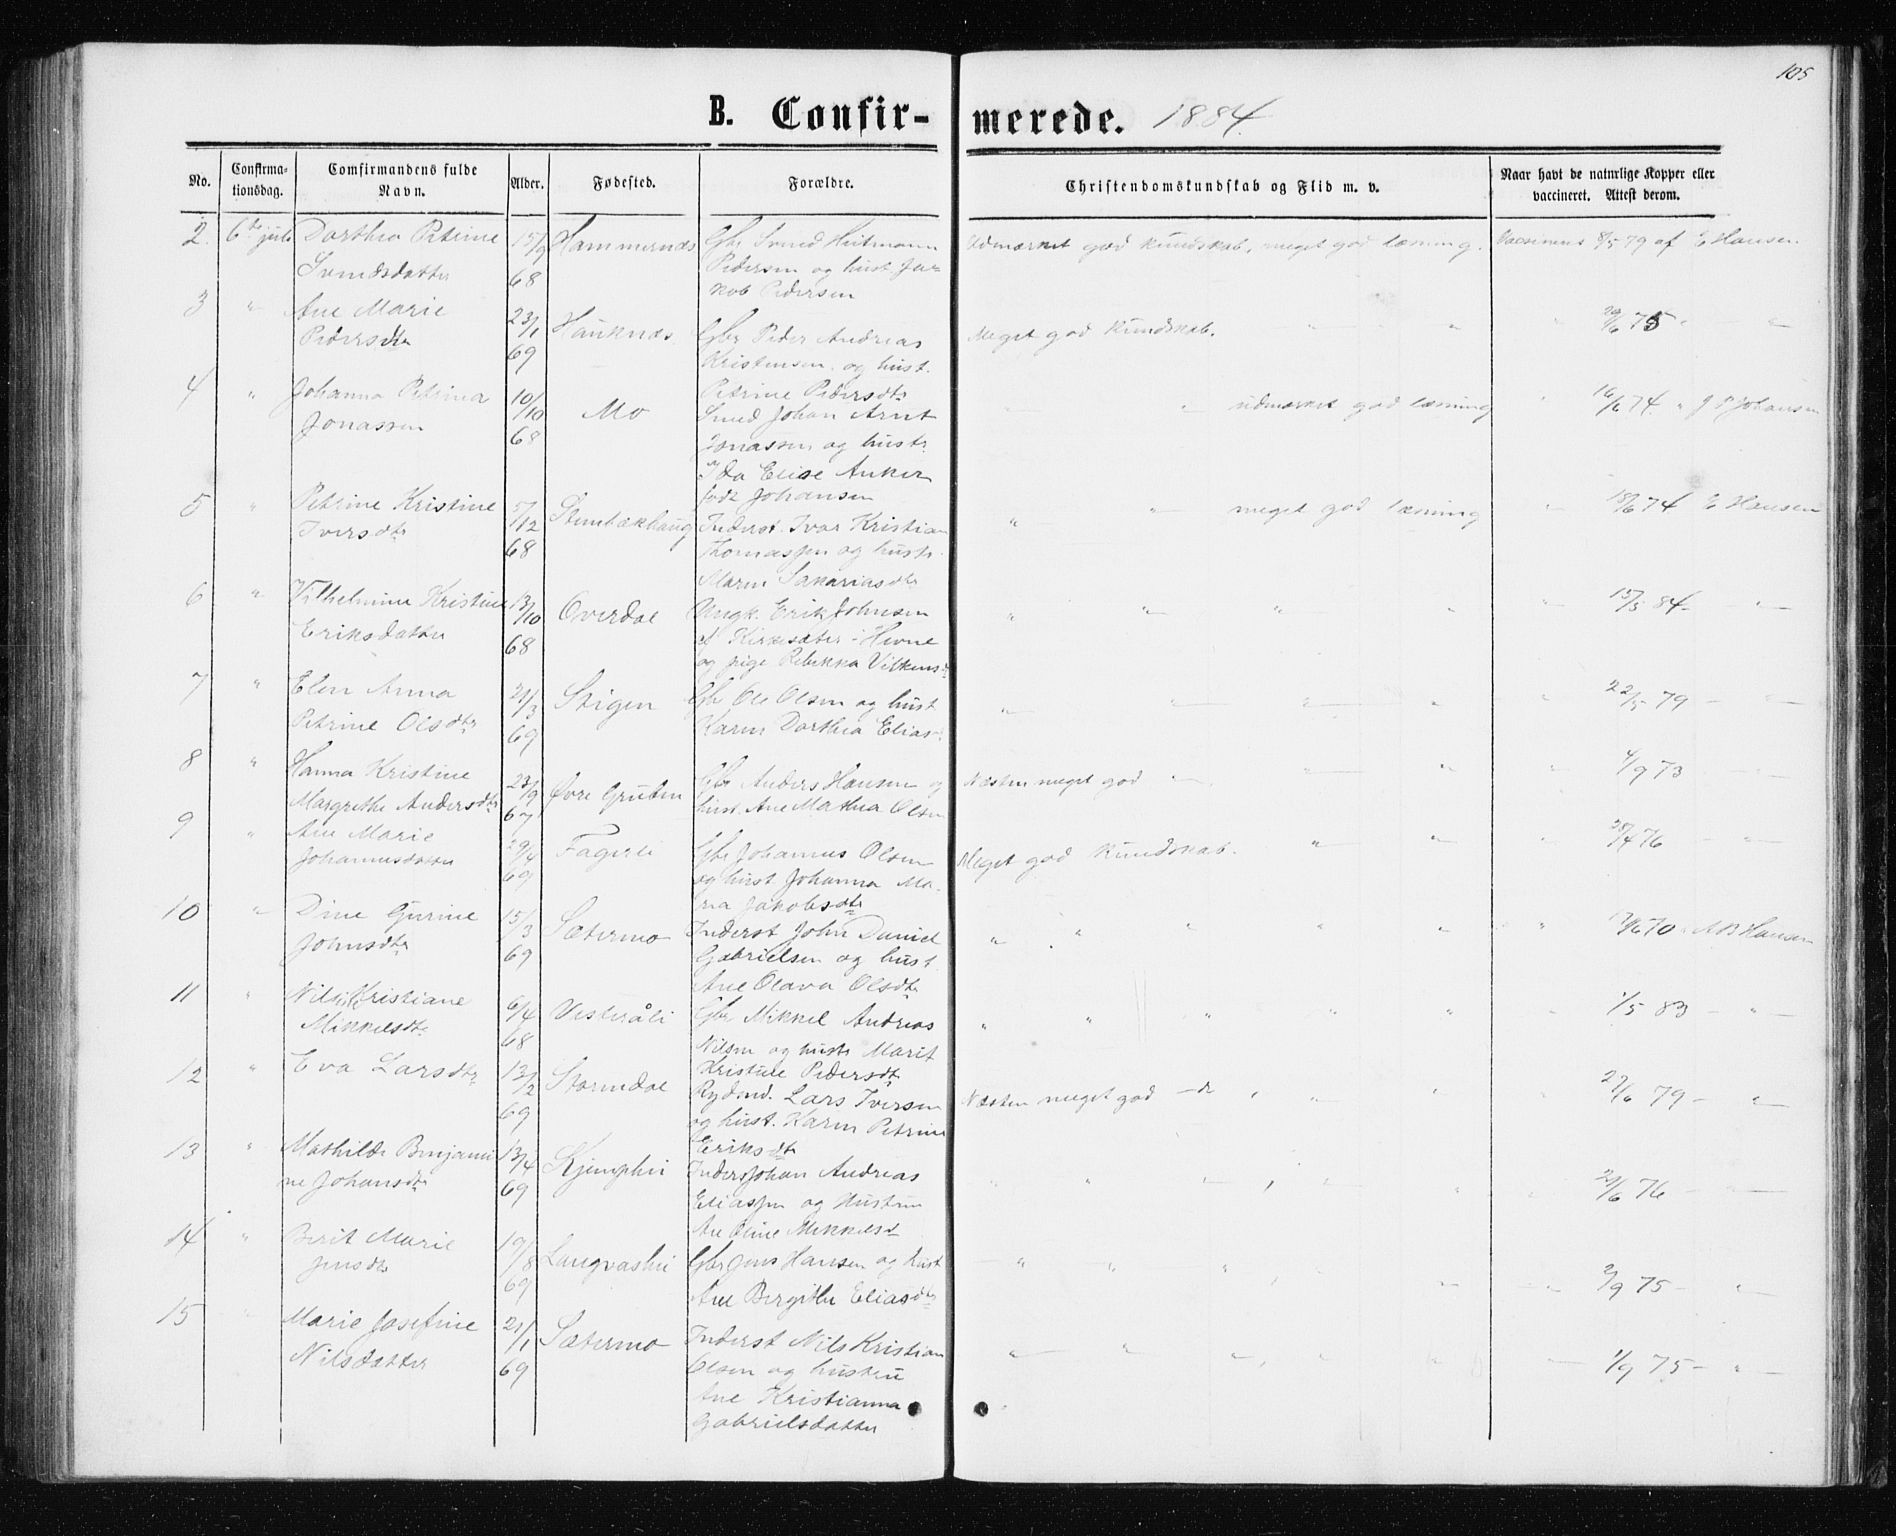 105
B. Confir-merede. 1884.
No. Confirma-tionsdag. Comfirmandens fulde Navn. Alder. Fødested. Forældre. Christendomskundskab og Flid m. v. Naar havt de naturlige Kopper eller vaccineret. Attest derom.
2. 6te juli Dorthea Petrine 15/9 Hammernæs Gbr Svend Hutmann Udmærket god kundskab, meget god læsning. Vaccineret 8/5 79 af E Hansen.
Svendsdatter 68 Pedersen og hust Ja-
kob Pedersen
3 " Ane Marie 23/1 Hauknæs Gbr Peder Andreas Meget god kundskab. " " " 29/6 75 " "
Pedersdtr 69 Kristensen og hust.
Petrine Pedersdtr
4 " Johanna Petrina 10/10 Mo Smed Johan Arnt " " udmærket god læsning " 16/6 74 " J P Johansen
Jonassen 68 Jonassen og hustr
Ida Elise Anker
født Johansen
5 " Petrine Kristine 5/12 Stenbækhaug Inderst. Ivar Kristian " " meget god læsning " 18/6 74 E Hansen
Iversdtr 68 Thomassen og hustr.
Maren Sakariasdtr
6 " Vilhelmine Kristine 13/10 Overdal Ungk. Erik Johnsen " " " " " 15/5 84 - "
Eriksdatter 68 af Kirksæter i Hevne
og pige Rebekka Vilkensdt
7 " Elen Anna 21/3 Stigen Gbr Ole Olsen og hust " " " " " 22/5 79 - "
Petrine Olsdtr 69 Karen Dorthea Elias
8 " Hanna Kristine 23/9 Øvre Gruben Gbr Anders Hansen og Næsten meget god " " " " 4/9 73 - "
Margrethe Andersdtr 67 hust. Ane Mathea Olsen
9 " Ane Marie 29/4 Fagerli Gbr Johannes Olsen Meget god kundskab. " " " 28/4 76 - "
Johannesdatter 69 og hust Johanna Ma-
ria Jakobsdtr
10 " Dine Gurine 15/3 Sætermo Inderst John Daniel " " " " " " 13/6 70 " A B Hansen
Johnsdtr 69 Gabrielsen og hust.
Ane Olava Olsdtr
11 " Nilsine Kristiane 6/4 Vesteråli Gbr Mikkel Andreas " " " " " " 1/5 83 - " -
Mikkelsdtr 68 Nilsen og hustr Marit
Kristine Pedersdtr
12 " Eva Larsdtr 13/2 Stormdal Rydnd. Lars Iversen Næsten meget god " " " " " 27/6 79 - "
69 og hust. Karen Petrine
Eriksdtr
13 " Mathilde Benjami 13/4 Kjempehei Inders Johan Andreas " " " " " " 21/6 76 - "
ne Johansdtr 69 Eliassen og Hustru
Ane Oline Mikkelsdt
14 " Berit Marie 19/8 Langvashei Gbr Jens Hansen og hust " " " " " " 2/9 75 - "
Jensdtr 69 Ane Birgithe Eliasdtr
15 " Marie Josefine 21/1 Sætermo Inderst Nils Kristian " " " " " " 1/9 75 - "
Nilsdatter 69 Olsen og hustru
Ane Kristianna
Gabrielsdatter